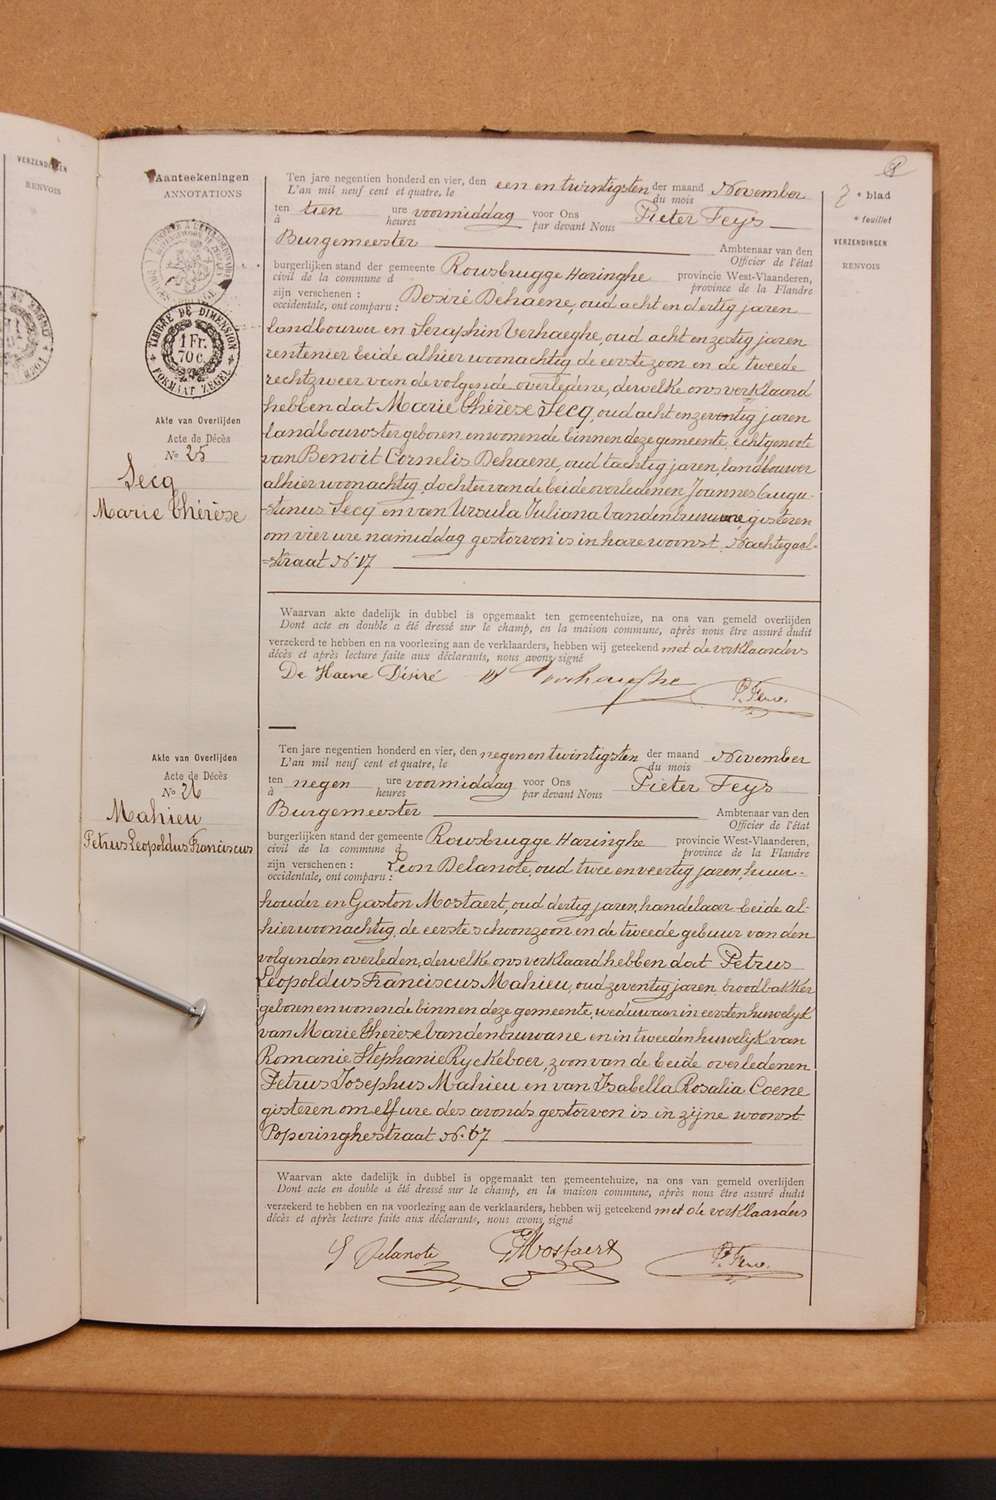 VERZENDINGEN
RENVOIS
Aanteekeningen
ANNOTATIONS
TIMBRE DE DIMENSION
1 Fr.
70 c.
FORMAAT ZEGEL
Akte van Overlijden
Acte de Décès
No 25
Secq
Marie Thérèse
8
7e blad
e feuillet
VERZENDINGEN
RENVOIS
Ten jare negentien honderd en vier, den een en twintigsten der maand November
L'an mil neuf cent et quatre, le du mois
ten tien ure voormiddag voor Ons Pieter Feys
à heures par devant Nous
Burgemeester Ambtenaar van den
Officier de l'état
burgerlijken stand der gemeente Rousbrugge Haringhe provincie West-Vlaanderen,
civil de la commune d province de la Flandre
zijn verschenen : Desiré Dehaene, oud acht en dertig jaren
occidentale, ont comparu :
landbouwer en Seraphin Verhaeghe, oud acht en zestig jaren
rentenier beide alhier woonachtig de eerste zoon en de tweede
rechtzweer van de volgende overledene, dewelke ons verklaard
hebben dat Marie Thérèse Secq, oud acht en zeventig jaren
landbouwster geboren en wonende binnen deze gemeente, echtgenoote
van Benoit Cornelis Dehaene, oud tachtig jaren, landbouwer
alhier woonachtig, dochter van de beide overledenen Joannes Augu-
-stinus Secq en van Ursula Juliana Vandenbruwane, gisteren
om vier ure namiddag gestorven is in hare woonst, Nachtegaal-
=straat No 17
Waarvan akte dadelijk in dubbel is opgemaakt ten gemeentehuize, na ons van gemeld overlijden
Dont acte en double a été dressé sur le champ, en la maison commune, après nous être assuré dudit
verzekerd te hebben en na voorlezing aan de verklaarders, hebben wij geteekend met de verklaarders
décès et après lecture faite aux déclarants, nous avons signé
De Haene Désiré Verhaeghe P. Feys.
Akte van Overlijden
Acte de Décès
No 26
Mahieu
Petrus Leopoldus Franciscus
Ten jare negentien honderd en vier, den negen en twintigsten der maand November
L'an mil neuf cent et quatre, le du mois
ten negen ure voormiddag voor Ons Pieter Feys
à heures par devant Nous
Burgemeester Ambtenaar van den
Officier de l'état
burgerlijken stand der gemeente Rousbrugge Haringhe provincie West-Vlaanderen,
civil de la commune d province de la Flandre
zijn verschenen : Leon Delanote, oud twee en veertig jaren, huur-
occidentale, ont comparu :
houder en Gaston Mostaert, oud dertig jaren, handelaar beide al-
hier woonachtig, de eerste schoonzoon en de tweede gebuur van den
volgenden overleden, dewelke ons verklaard hebben dat Petrus
Leopoldus Franciscus Mahieu, oud zeventig jaren, broodbakker
geboren en wonende binnen deze gemeente, weduwaar in eersten huwelijk
van Marie Thérèse Vandenbuwane en in tweeden huwelijk van
Romanie Stephanie Ryckeboer, zoon van de beide overledenen
Petrus Josephus Mahieu en van Isabella Rosalia Coene
gisteren om elf ure des avonds gestorven is in zijne woonst
Poperinghestraat No 67
Waarvan akte dadelijk in dubbel is opgemaakt ten gemeentehuize, na ons van gemeld overlijden
Dont acte en double a été dressé sur le champ, en la maison commune, après nous être assuré dudit
verzekerd te hebben en na voorlezing aan de verklaarders, hebben wij geteekend met de verklaarders
décès et après lecture faite aux déclarants, nous avons signé
Delanote GMostaert P. Feys.